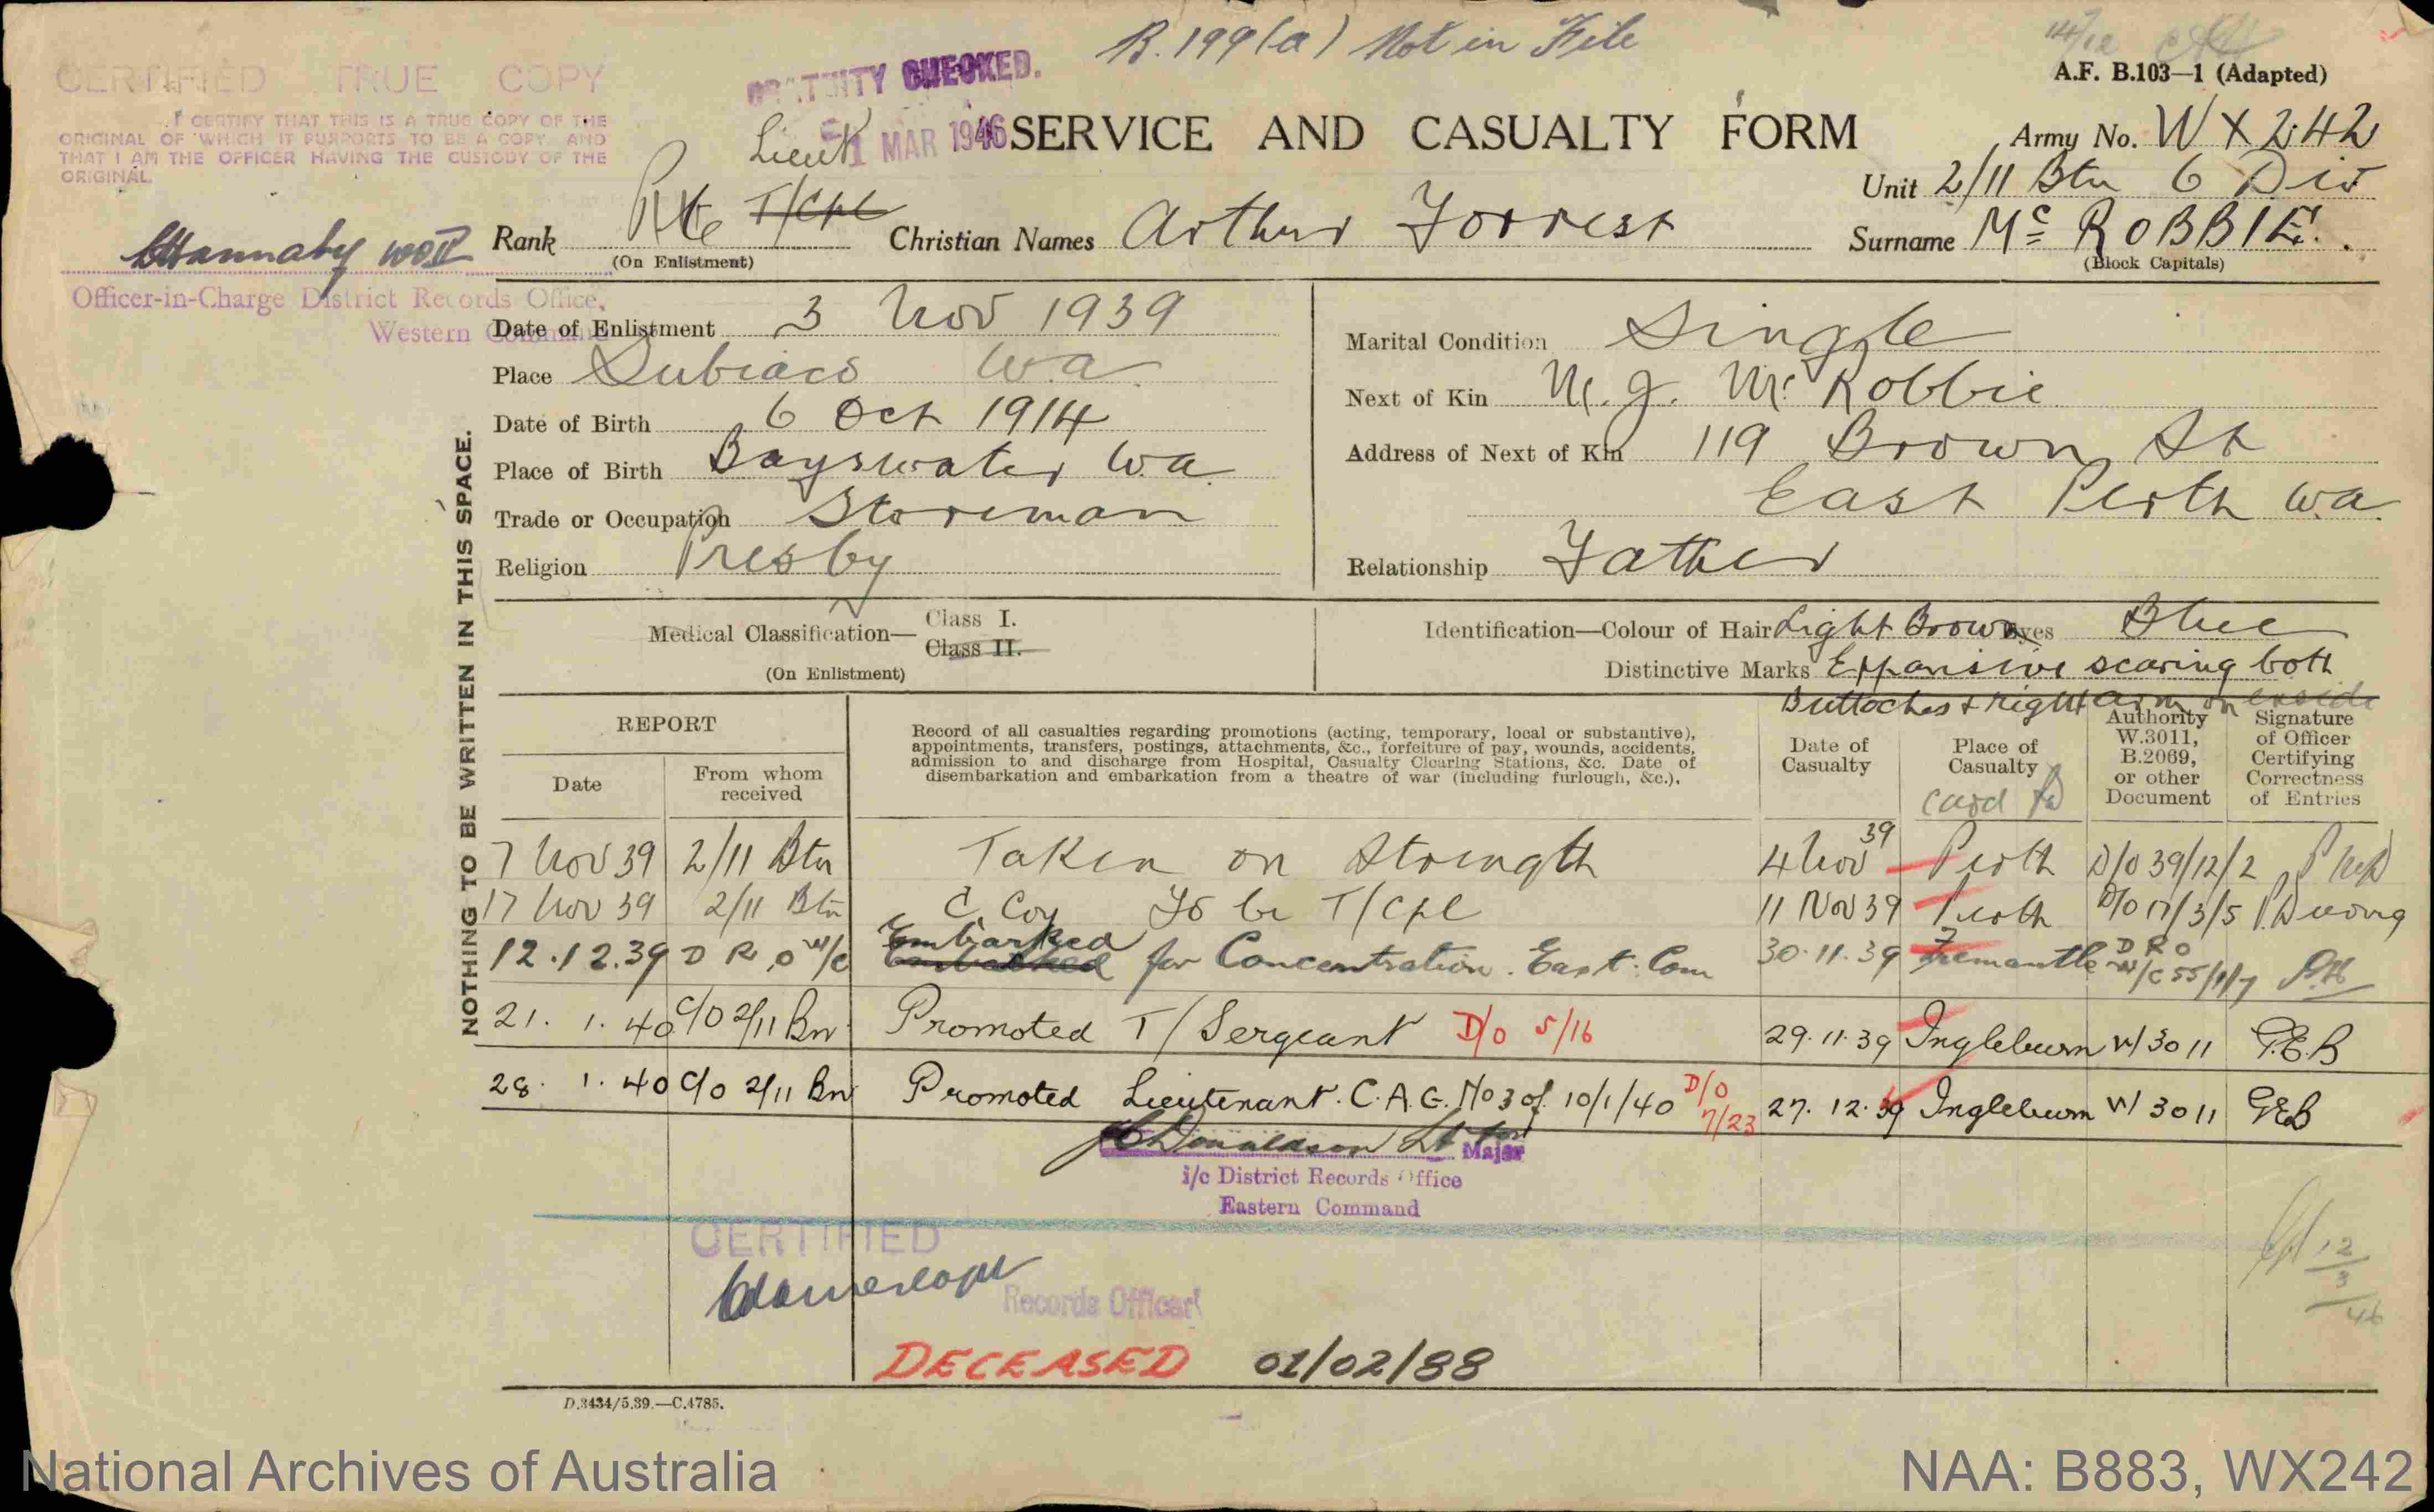 B.199(a) Not in File
CERTIFIED TRUE COPY
I CERTIFY THAT THIS IS A TRUE COPY OF THE
ORIGINAL OF WHICH IT PURPORTS TO BE A COPY AND
THAT I AM THE OFFICER HAVING THE CUSTODY OF THE
ORIGINAL.
WOII
Officer-in-Charge District Records Office,
Western Command
GRATUITY CHECKED.
1 MAR 1946
A.F. B.103—1 (Adapted)
SERVICE AND CASUALTY FORM
Army No. WX242
Unit 2/11 Btn 6 Div
Lieut
Rank Pte T/Cpl
(On Enlistment)
Christian Names Arthur Forrest
Surname McROBBIE.
(Block Capitals)
Date of Enlistment 3 Nov 1939
Place Subiaco W.A.
Date of Birth 6 Oct 1914
Place of Birth Bayswater W.A.
Trade or Occupation Storeman
Religion Presby
Marital Condition Single
Next of Kin M. J. McRobbie
Address of Next of Kin 119 Brown St
East Perth W.A.
Relationship Father
NOTHING TO BE WRITTEN IN THIS SPACE.
Medical Classification— Class I.
Class II.
(On Enlistment)
Identification—Colour of Hair Light Brown Eyes Blue
Distinctive Marks Expansive scaring both
Buttoches & right arm on
REPORT
Date
From whom received
Record of all casualties regarding promotions (acting, temporary, local or substantive),
appointments, transfers, postings, attachments, &c., forfeiture of pay, wounds, accidents,
admission to and discharge from Hospital, Casualty Clearing Stations, &c. Date of
disembarkation and embarkation from a theatre of war (including furlough, &c.).
Date of Casualty
Place of Casualty
Card
Authority W.3011, B.2069, or other Document
Signature of Officer Certifying Correctness of Entries
7 Nov 39 2/11 Btn Taken on Strength 4 Nov 39 Perth D/O 39/12/2
17 Nov 39 2/11 Btn C Coy To be T/Cpl 11 Nov 39 Perth D/O 17/3/5
12.12.39 D R O W/C Embarked for Concentration. East. Com 30.11.39 Fremantle D R O W/C 55/1/7
21. 1. 40 C/O 2/11 Bn Promoted T/Sergeant D/O 5/16 29.11.39 Ingleburn W/3011 G.E.B
28. 1. 40 C/O 2/11 Bn Promoted Lieutenant. C.A.G. No 3 of 10/1/40 D/O 7/23 27.12.39 Ingleburn W/3011 GEB
Donaldson Lt for Major
i/c District Records Office
Eastern Command
CERTIFIED
Records Officer
12/3/46
DECEASED 01/02/88
D.3434/5.39.—C.4785.
National Archives of Australia
NAA: B883, WX242